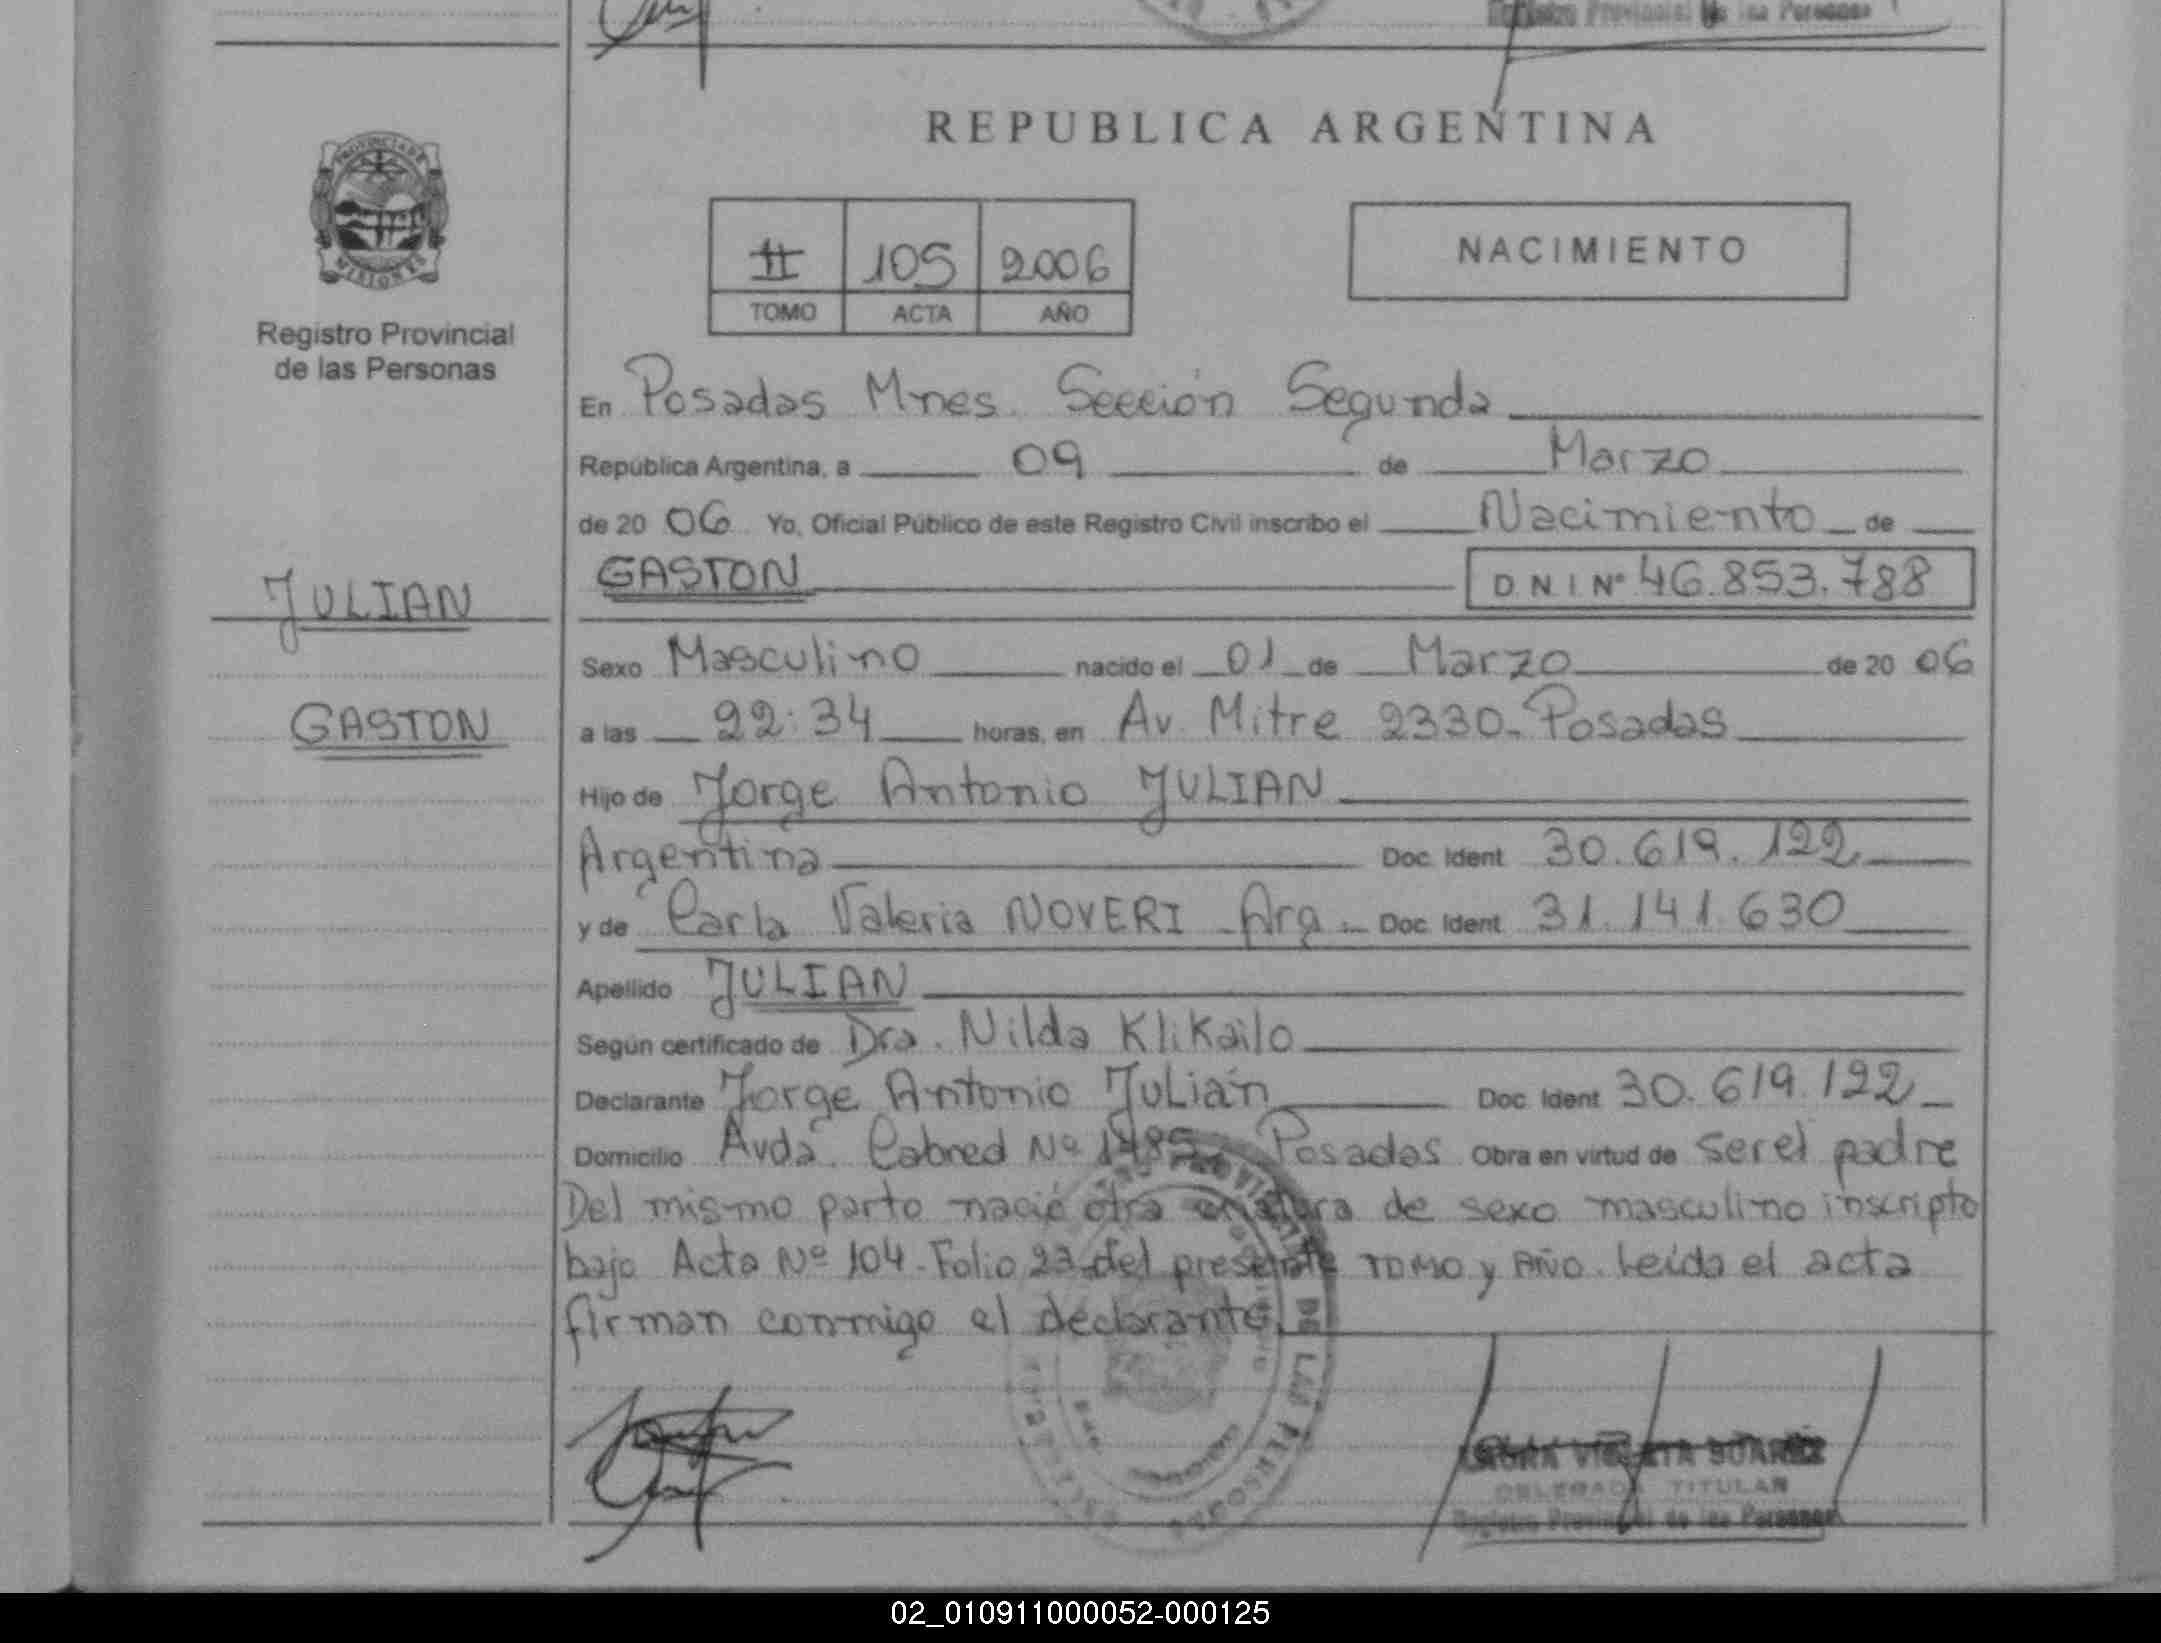 Registro Provincial de las Personas
REPUBLICA ARGENTINA
PROVINCIA DE
MISIONES
Registro Provincial
de las Personas
II 105 2006
TOMO ACTA AÑO
NACIMIENTO
En Posadas Mnes. Sección Segunda
República Argentina, a 09 de Marzo
de 20 06 Yo, Oficial Público de este Registro Civil inscribo el Nacimiento de
JULIAN
GASTON
GASTON D N I Nº 46.853.788
Sexo Masculino nacido el 01 de Marzo de 20 06
a las 22:34 horas, en Av. Mitre 2330- Posadas
Hijo de Jorge Antonio JULIAN
Argentina Doc. Ident. 30.619.122
y de Carla Valeria NOVERI Arg. Doc. Ident. 31.141.630
Apellido JULIAN
Según certificado de Dra. Nilda Klikailo
Declarante Jorge Antonio Julián Doc. Ident. 30.619.122
Domicilio Avda. Cabred Nº 1785 Posadas Obra en virtud de ser el padre
Del mismo parto nació otra criatura de sexo masculino inscripto
bajo Acta Nº 104-Folio 23 del presente TOMO y AÑO. Leída el acta
firman conmigo el declarante.
DE LAS PERSONAS
SUAREZ
DELEGADA TITULAR
Registro Provincial de las Personas
02_010911000052-000125